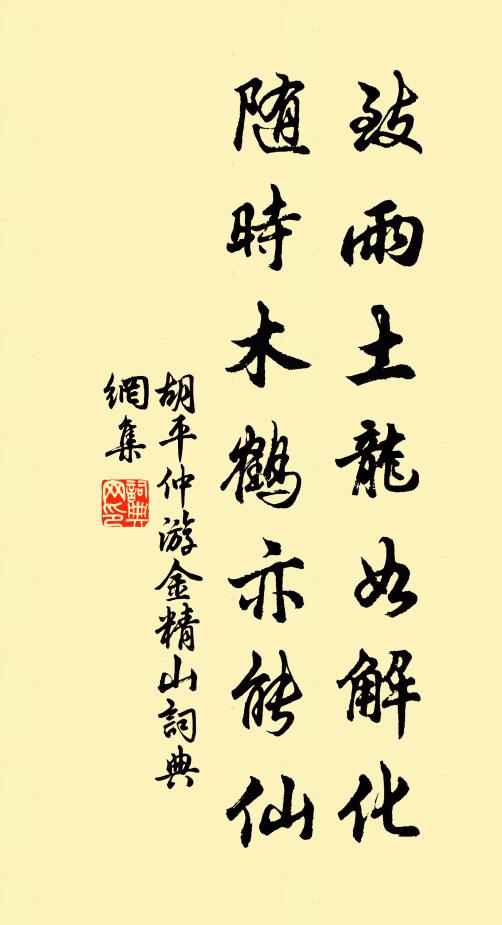 致雨土龍如解化
随時木鶴亦能仙
胡平仲游金精山詞典
網集
詞典
网印